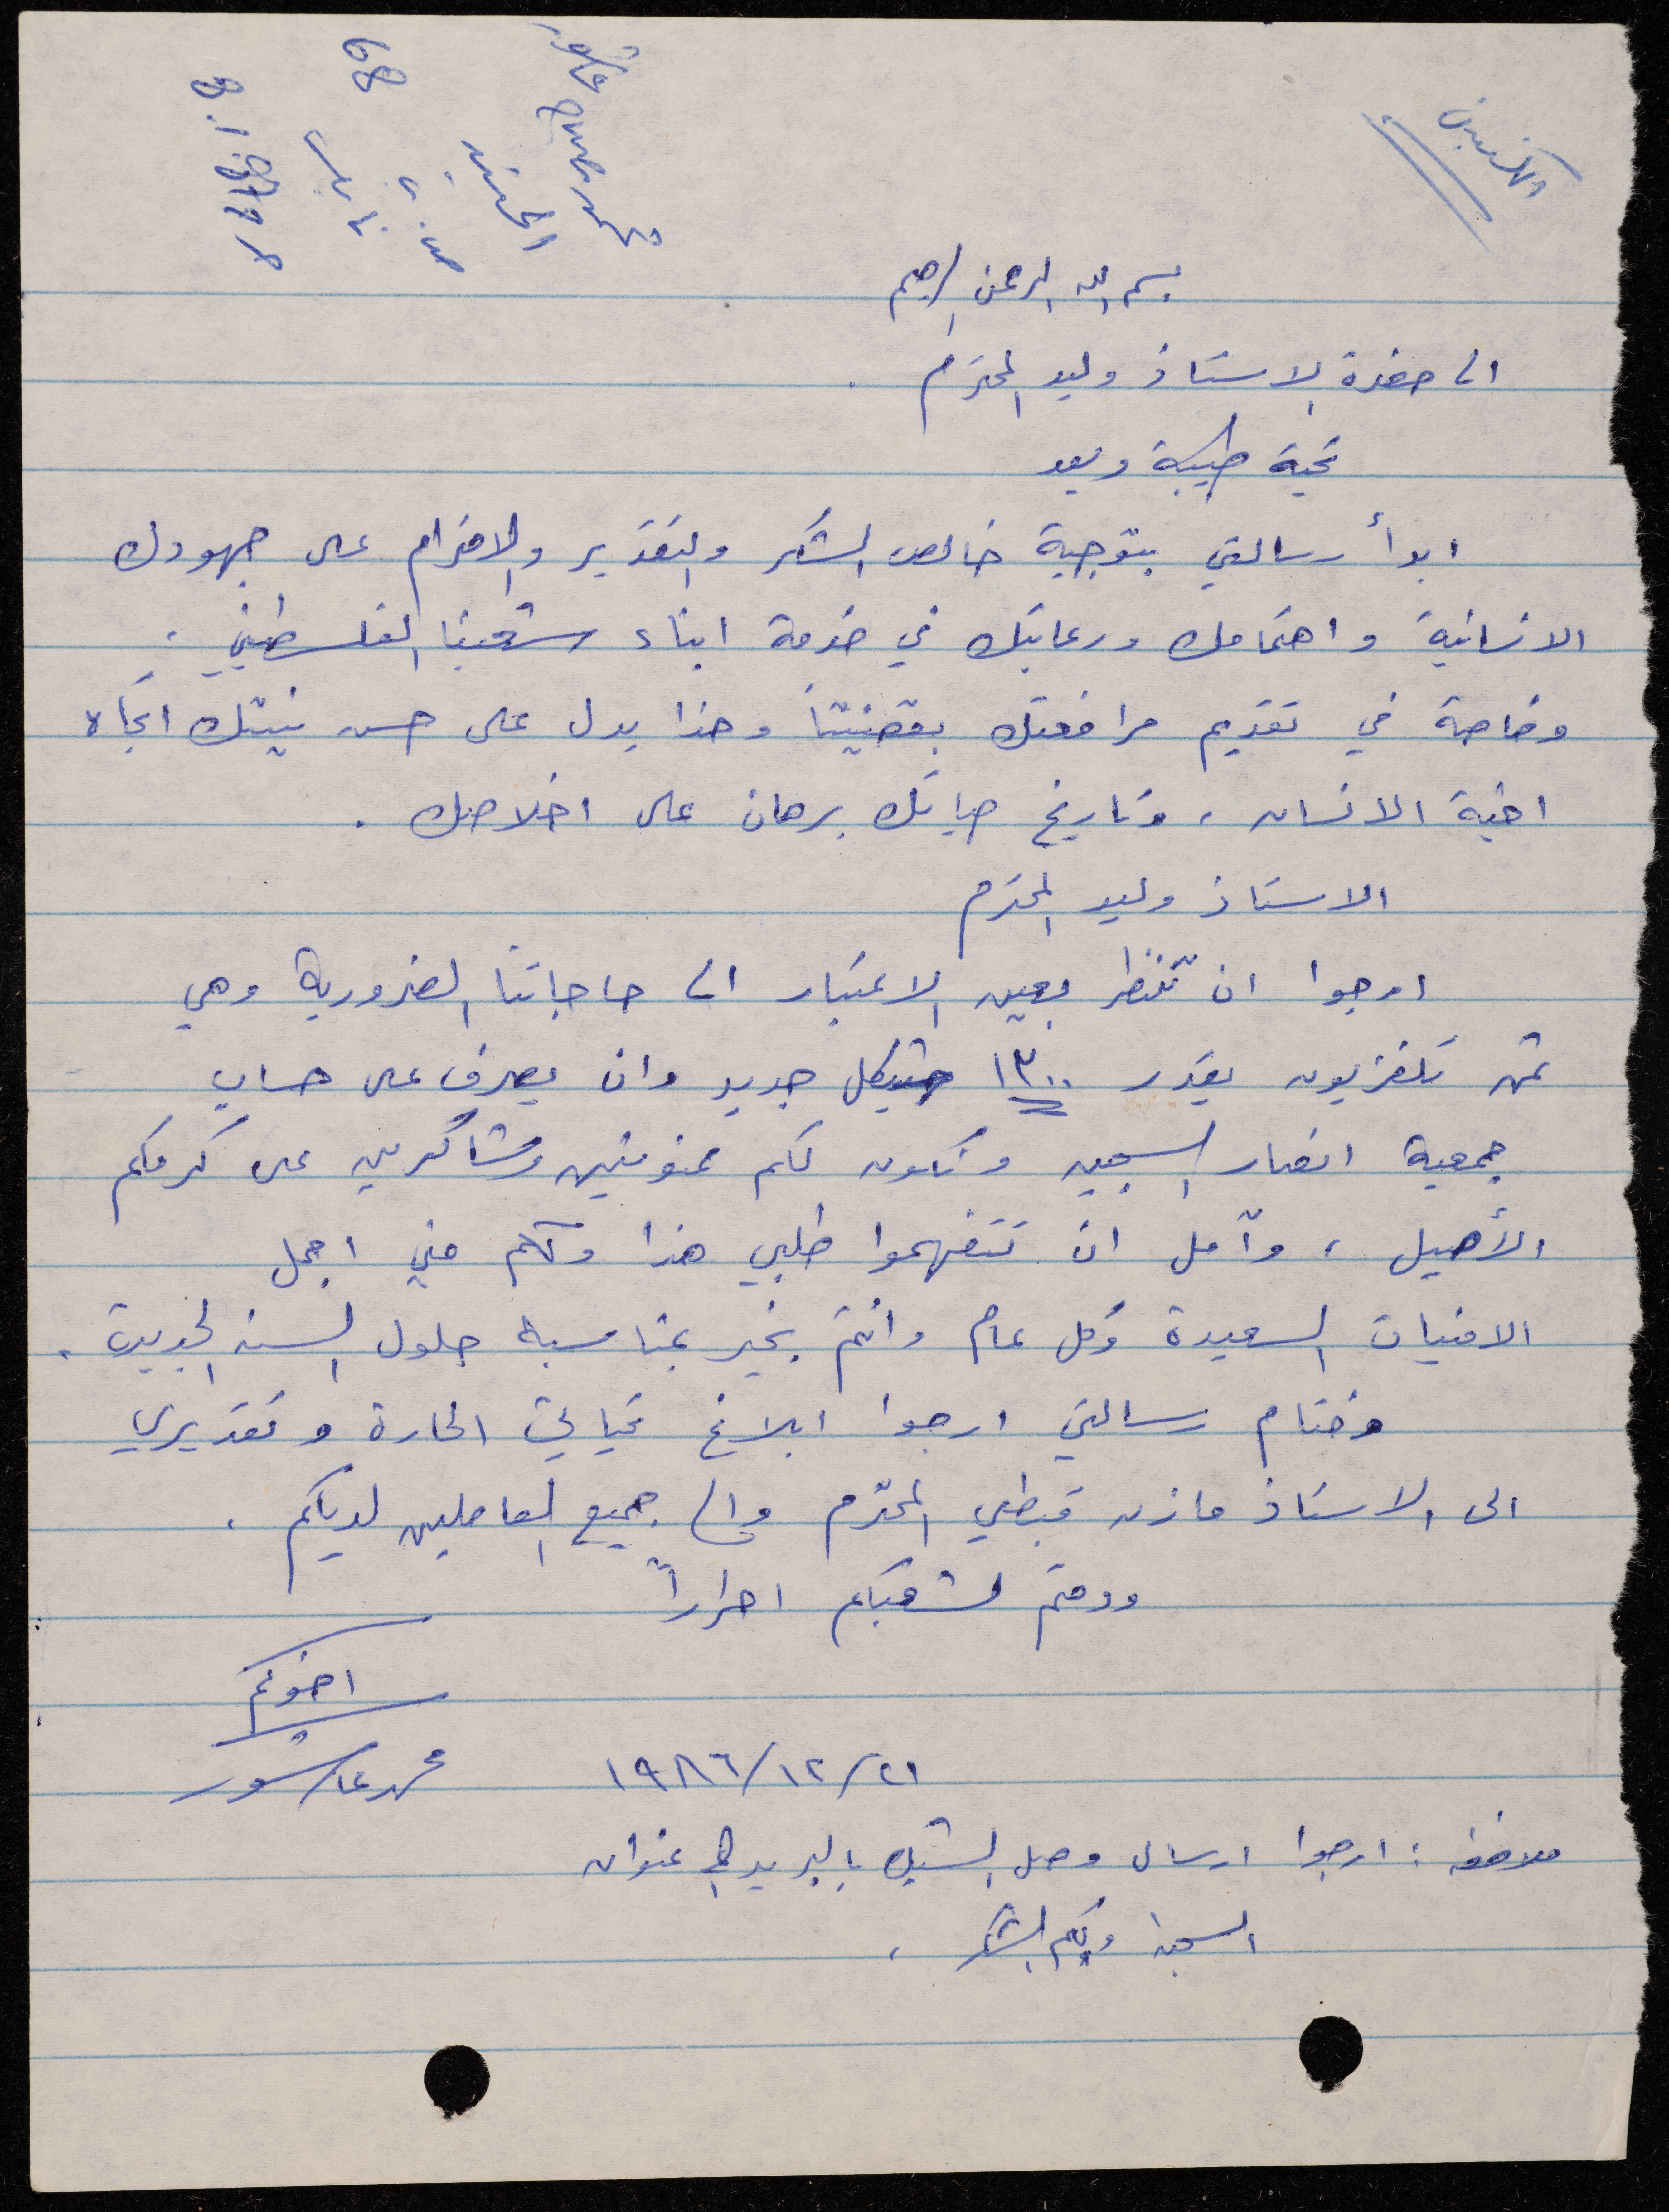 محمد صبح عاشور
الجنيد
بسم الله الرحمن الرحيم
الى حضرة الاستاذ وليد المحترم .
تحية طيبة وبعد
ابدأ رسالتي بتوجية خالص الشكر والتقدير والاحترام على جهودك
الانسانية واهتمامك ورعايتك في خدمة ابناء شعبنا الفلسطيني ،
وخاصة في تقديم مرافعتك بقضيتنا وهذا يدل على حسن نيتك اتجاه
اخية الانسان ، وتاريخ حياتك برهان على اخلاصك .
الاستاذ وليد المحترم
ارجوا ان تنظر بعين الاعتبار الى حاجاتنا الضرورية وهي
ثمن تلفزيون يقدر ١٣٠٠ شيكل جديد وان يصرف على حساب
جمعية انصار السجين ونكون لكم ممنونين وشاكرين على كرمكم
الأصيل ، وآمل ان تتفهموا طلبي هذا ولكم مني اجمل
الامنيات السعيدة وكل عام وانتم بخير بمناسبة حلول السنه الجديدة .
وختام رسالتي ارجوا ابلاغ تحياتي الحارة وتقديري
الى الاستاذ مازن قبطي المحترم والى جميع العاملين لديكم .
ودمتم لشعبكم احراراً
اخوكم
محمد عاشور
١٩٨٦/١٢/٢١
ملاحظه : ارجوا ارسال وصل الشيك بالبريد الى عنوان
السجن ولكم الشكر ،